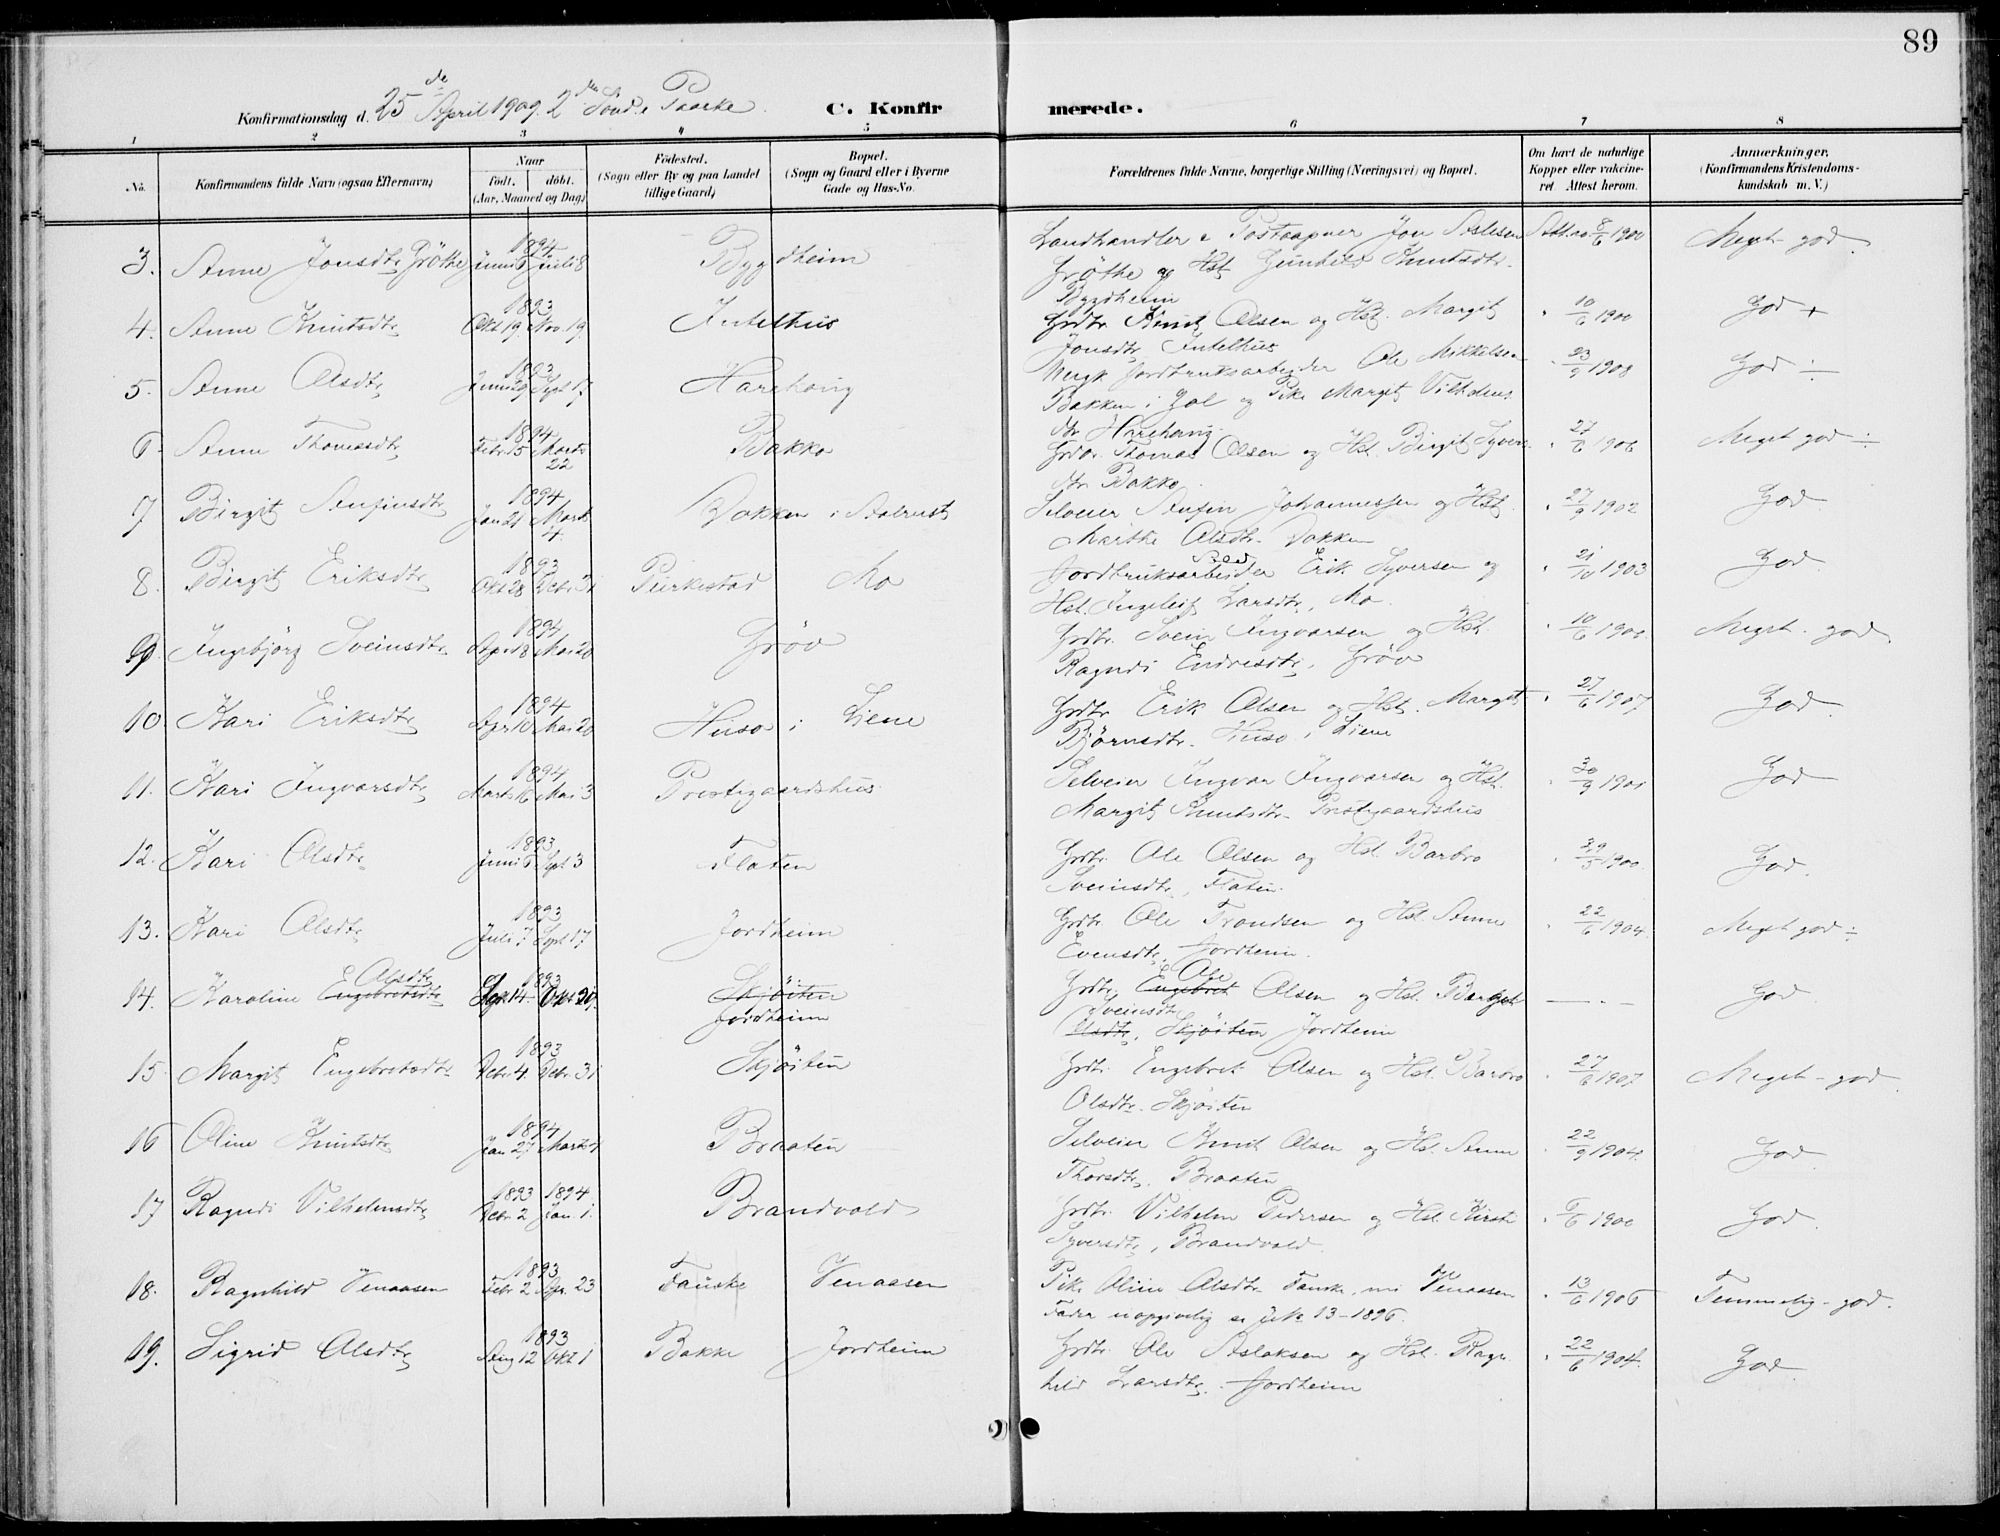 89
Konfirmationsdag d. 25de April 1909. 2den Sønd. e Paaske
C. Konfirmerede.
1 2 3 4 5 6 7 8
No.
Konfirmandens fulde Navn (ogsaa Efternavn)
Naar
født. døbt.
(Aar, Maaned og Dag)
Fødested.
(Sogn eller By og paa Landet
tillige Gaard)
Bopæl.
(Sogn og Gaard eller i Byerne
Gade og Hus-No.
Forældrenes fulde Navne, borgerlige Stilling (Næringsvei) og Bopæl.
Om havt de naturlige
Kopper eller vakcine-
ret Attest herom.
Anmærkninger.
(Konfirmandens Kristendoms-
kundskab m. V.)
3. Anne Jonsdtr Grøthe 1894 Juni 6 Juli 8 Bygdheim Landhandler & Postaapner Jon Aslesen Att. no 8/6 1900 Meget god.
Grøthe og Hst. Gunhild Knutsdtr.
Bygdheim
4. Anne Knutsdtr 1893 Okt 19. Nov. 19. Intelhus Grdbr. Knut Olsen og Hst. Margit " 10/6 1900 God +
Jonsdtr Intelhus
5. Anne Olsdtr 1893 Juni 29 Sept 17 Harehaug Ungk. Jordbruksarbeider Ole Mikkelsen " 23/9 1908 God ÷
Bakken i Gol og Pike Margit Vilhelms
dtr Harehaug.
6. Anne Thomasdtr 1894 Febr. 15 Marts 22 Bakko Grdbr. Thomas Olsen og Hst. Birgit Syvers " 27/6 1906 Meget god ÷
dtr Bakko.
7 Birgit Arnfinsdtr 1894 Jan 21 Marts 4. Bakken i Aalrust Selveier Arnfin Johannessen og Hst. " 27/9 1902 God
Marthe Olsdtr. Bakken
8. Birgit Eriksdtr 1893 Okt 28 Debr. 31 Purkestad Mo Jordbruksarbeider Erik Syversen og " 21/10 1903 God
Hst. Ingeleif Larsdtr, Mo.
9. Ingebjörg Sveinsdtr 1894 April 8 Mai 20 Grøv Grdbr. Svein Ingvarsen og Hst. " 10/6 Meget god.
Ragndi Endresdtr, Grøv
10 Kari Eriksdtr 1894 Apr. 10 Mai 20 Huso i Liene Grdbr. Erik Olsen og Hst. Margit " 27/6 1907 God.
Bjørnsdtr. Huso i Liene
11. Kari Ingvarsdtr 1894 Marts 16 Mai 3 Prestegaardshus Selveier Ingvar Ingvarsen og Hst. " 30/9 1901 God
Margit Knutsdtr. Prestgaardshus
12. Kari Olsdtr 1893 Juni 6 Sept 3 Flaten Grdbr. Ole Olsen og Hst. Barbro " 29/5 1900. God.
Sveinsdtr, Flaten.
13. Kari Olsdtr 1893 Juli 7 Sept 17 Jordheim Grdbr. Ole Trondsen og Hst. Anne " 22/6 1904. Meget god ÷
Evensdtr, Jordheim.
14. Karoline Engebretsdtr Olsdtr 1893 Sept 14. Okt. 29. Skjöiten Grdbr. Engebret Ole Olsen og Hst. — " — God
Jordheim
Sveinsdtr
Olsdtr, Skjöiten Jordheim
15. Margit Engebretsdtr 1893 Debr. 4. Debr. 31 Skjöiten Grdbr. Engebret Olsen og Hst. Barbro " 27/6 1907 Meget god
Olsdtr. Skjöiten
16 Oline Knutsdtr 1894 Jan 27 Marts 4 Braaten Selveier Knut Olsen og Hst. Anne " 22/9 1904. God
Thorsdtr, Braaten
17 Ragndi Vilhelmsdtr 1893 Debr. 2 1894 Jan 1. Brandvold Grdbr. Vilhelm Pedersen og Hst. Kirsti " 6/6 1900 God.
Syversdtr, Brandvold.
18. Ragnhild Venaasen 1893 Febr. 2 Apr. 23 Fauske Venaasen Pike Oline Olsdtr Fauske, nu Venaasen " 13/6 1906 Temmelig god.
Fader uopgivelig se 13–1896.
19. Sigrid Olsdtr 1893 Aug 12 Okt 1 Bakke Jordheim Grdbr. Ole Aslaksen og Hst. Ragn- " 22/6 1904. God
hild Larsdtr. Jordheim